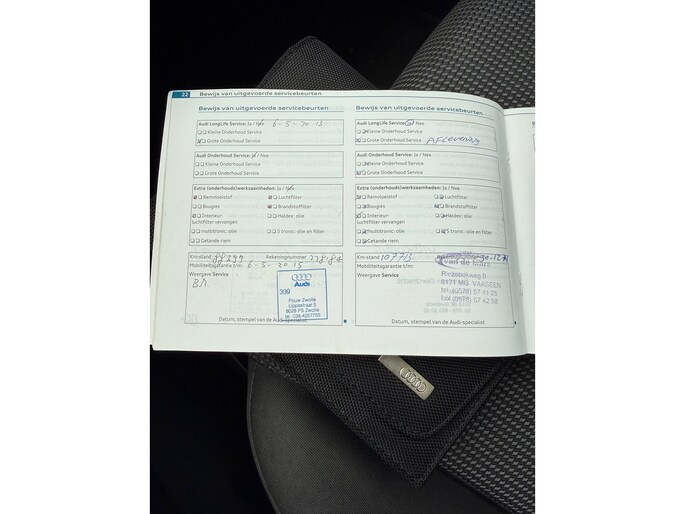 22 Bewijs van uitgevoerde servicebeurten
Bewijs van uitgevoerde servicebeurten
Audi LongLife Service: Ja / Nee 6-5-2013
Kleine Onderhoud Service
Grote Onderhoud Service
Audi Onderhoud Service: Ja / Nee
Kleine Onderhoud Service
Grote Onderhoud Service
Extra (onderhouds)werkzaamheden: Ja / Nee
Remvloeistof Luchtfilter
Bougies Brandstoffilter
Interieur- Haldex: olie
luchtfilter vervangen
multitronic: olie S tronic: olie en filter
Getande riem
Km-stand Rekeningnummer
Mobiliteitsgarantie t/m: 6-5-2015
Weergave Service
BM
Audi
399
Pouw Zwolle
Lippestraat 5
8028 PS Zwolle
tel. 038-4257755
Datum, stempel van de Audi-specialist
Bewijs van uitgevoerde servicebeurten
Audi LongLife Service: Ja / Nee
Kleine Onderhoud Service
Grote Onderhoud Service Aflevering
Audi Onderhoud Service: Ja / Nee
Kleine Onderhoud Service
Grote Onderhoud Service
Extra (onderhouds)werkzaamheden: Ja / Nee
Remvloeistof Luchtfilter
Bougies Brandstoffilter
Interieur- Haldex: olie
luchtfilter vervangen
multitronic: olie S tronic: olie en filter
Getande riem
Km-stand 107713
Mobiliteitsgarantie t/m:
Weergave Service
8171 MG VAASSEN
Tel. (0578) 57 41 25
Fax (0578) 57 42 58
Datum, stempel van de Audi-specialist